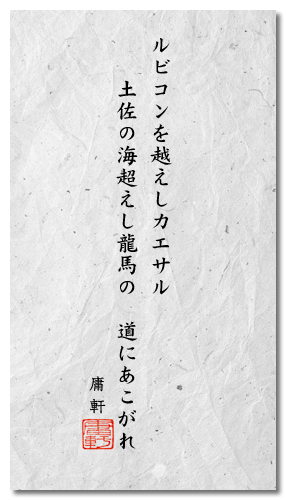 ルビコンを越えしカエサル
土佐の海超えし龍馬の　道にあこがれ
庸軒
庸軒